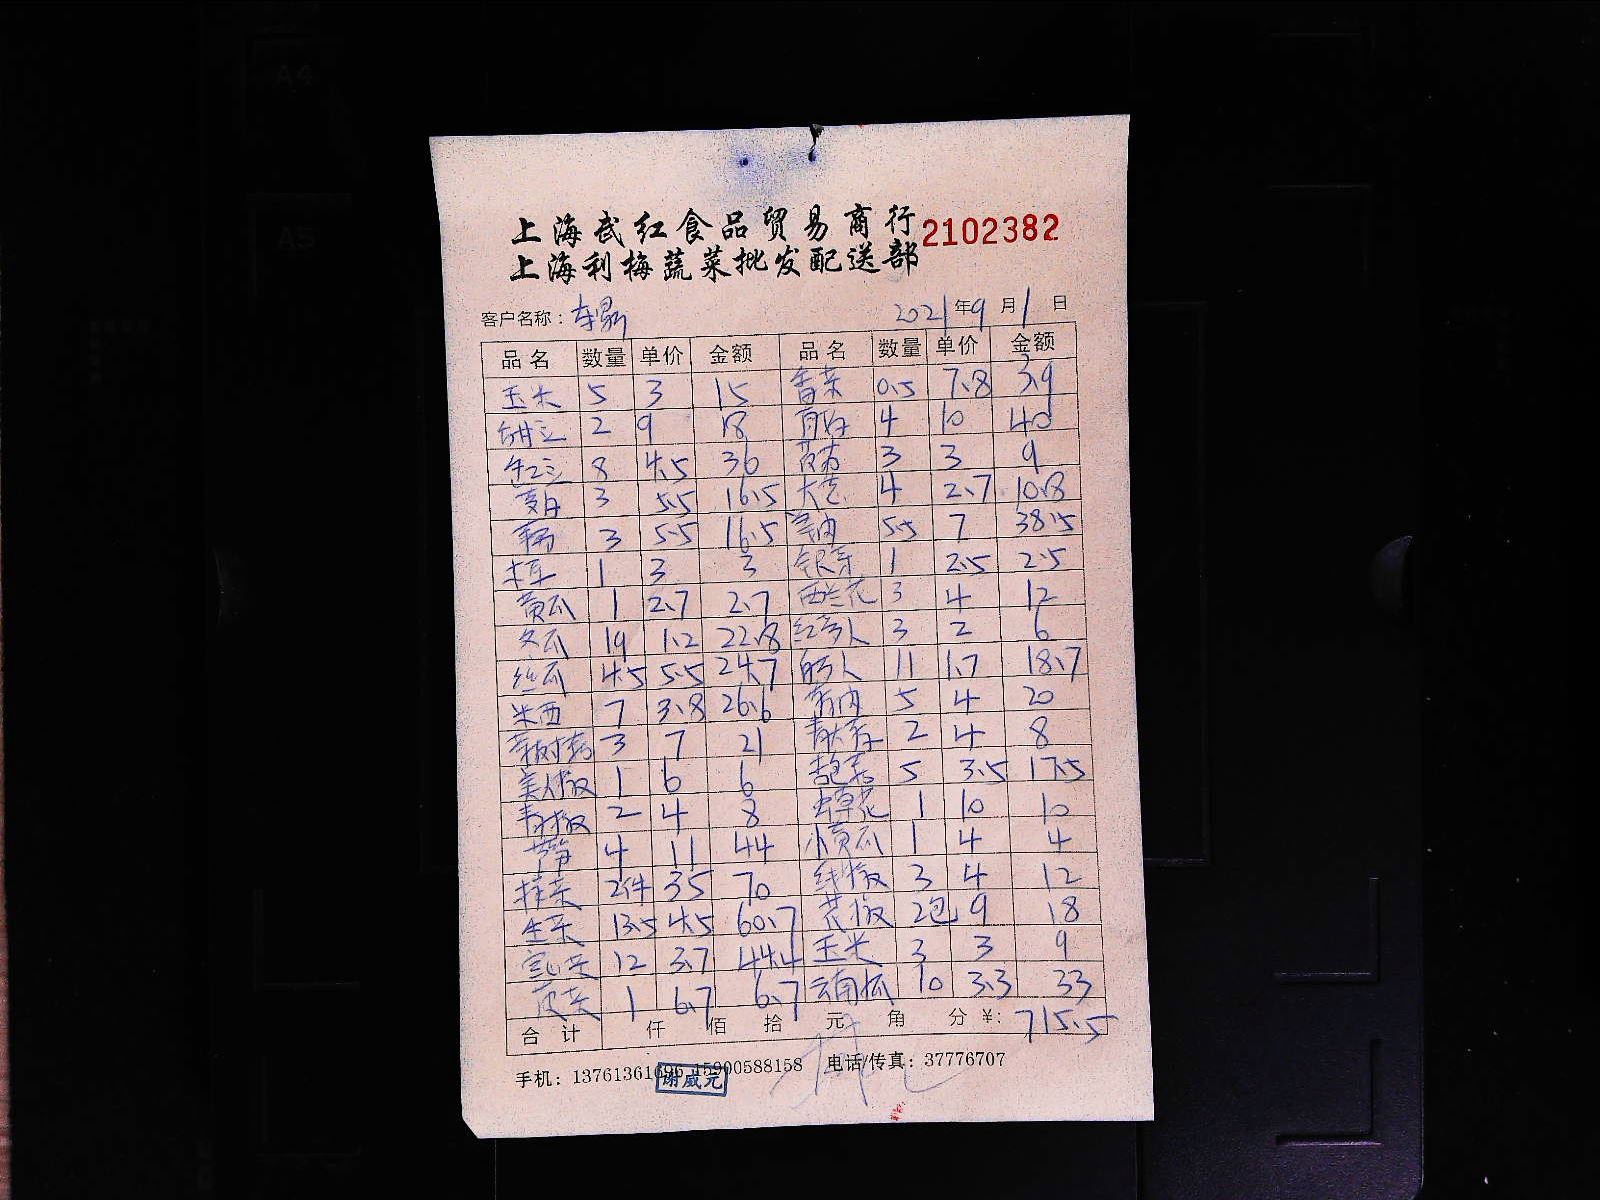 A4
A5
上海武红食品贸易商行 2102382
上海利梅蔬菜批发配送部
客户名称： 2021年9月1日
品名 数量 单价 金额 品名 数量 单价 金额
玉米 5 3 15 香菜 0.5 7.8 3.9
甜豆 2 9 18 4 10 40
8 4.5 36 3 3 9
3 5.5 16.5 大葱 4 2.7 10.8
3 5.5 16.5 5.5 7 38.5
1 3 3 银芽 1 2.5 2.5
黄瓜 1 2.7 2.7 西兰花 3 4 12
冬瓜 19 1.2 22.8 3 2 6
丝瓜 4.5 5.5 24.7 11 1.7 18.7
米西 7 3.8 26.6 5 4 20
3 7 21 2 4 8
美人椒 1 6 6 5 3.5 17.5
青椒 2 4 8 虫草花 1 10 10
4 11 44 小黄瓜 1 4 4
2件 35 70 线椒 3 4 12
生菜 13.5 4.5 60.7 2包 9 18
12 3.7 44.4 玉米 3 3 9
1 6.7 6.7 云南瓜 10 3.3 33
合计 仟 佰 拾 元 角 分 ¥: 715.5
手机：13761361696 15900588158 电话/传真：37776707
谢威元